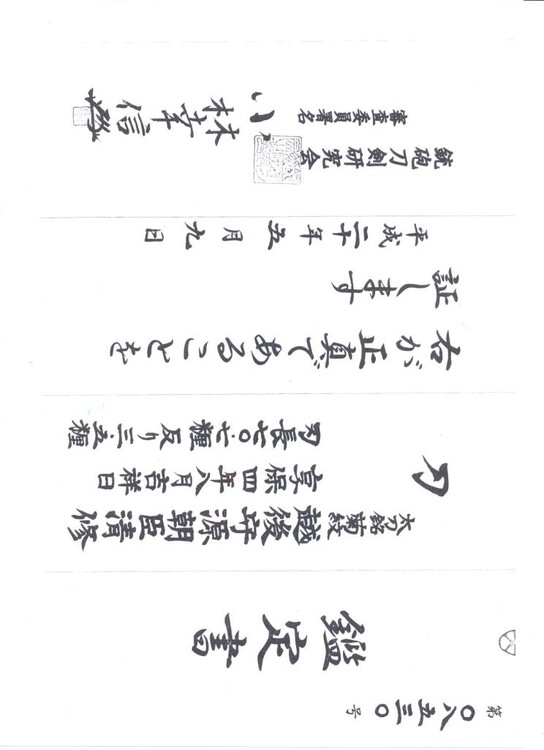 第〇八五三〇号
鑑定書
刀
太刀銘 菊紋 越後守源朝臣清修
享保四年八月吉祥日
刃長七〇.七糎 反り三.五糎
右が正真であることを
証します
平成二十年五月九日
銃砲刀剣研究会
審査委員署名
小林幸信